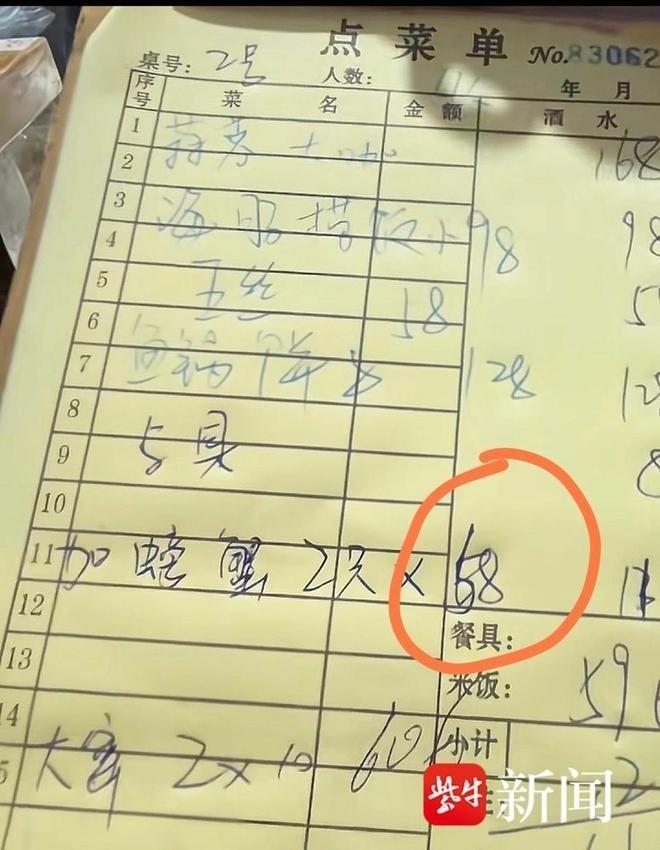 点菜单 No.83062
桌号: 2号 人数: 年 月
序号 菜名 金额 酒水
1
蒜蓉 大咖 168
2
3
海胆捞饭小 98 98
4
5
玉丝 58
6
鱼锅饼 128
7
8
9
5具 8
10
11 加螃蟹 2只 x 58
12
餐具:
13
米饭: 59
14
小计
大窑 2x10 606
紫牛新闻